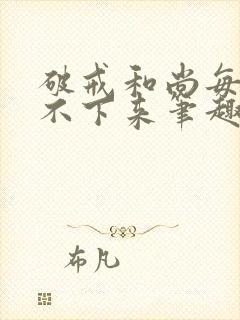 破戒和尚每
不下来笔趣
布凡